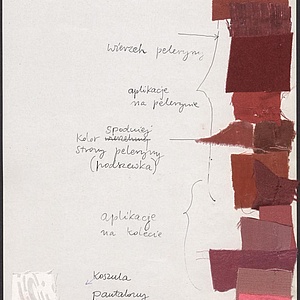 wierzch peleryny
aplikacje
na pelerynie
spodniej
kolor wierzchniej
strony peleryny
(podszewka)
aplikacje
na kolecie
koszula
pantalony